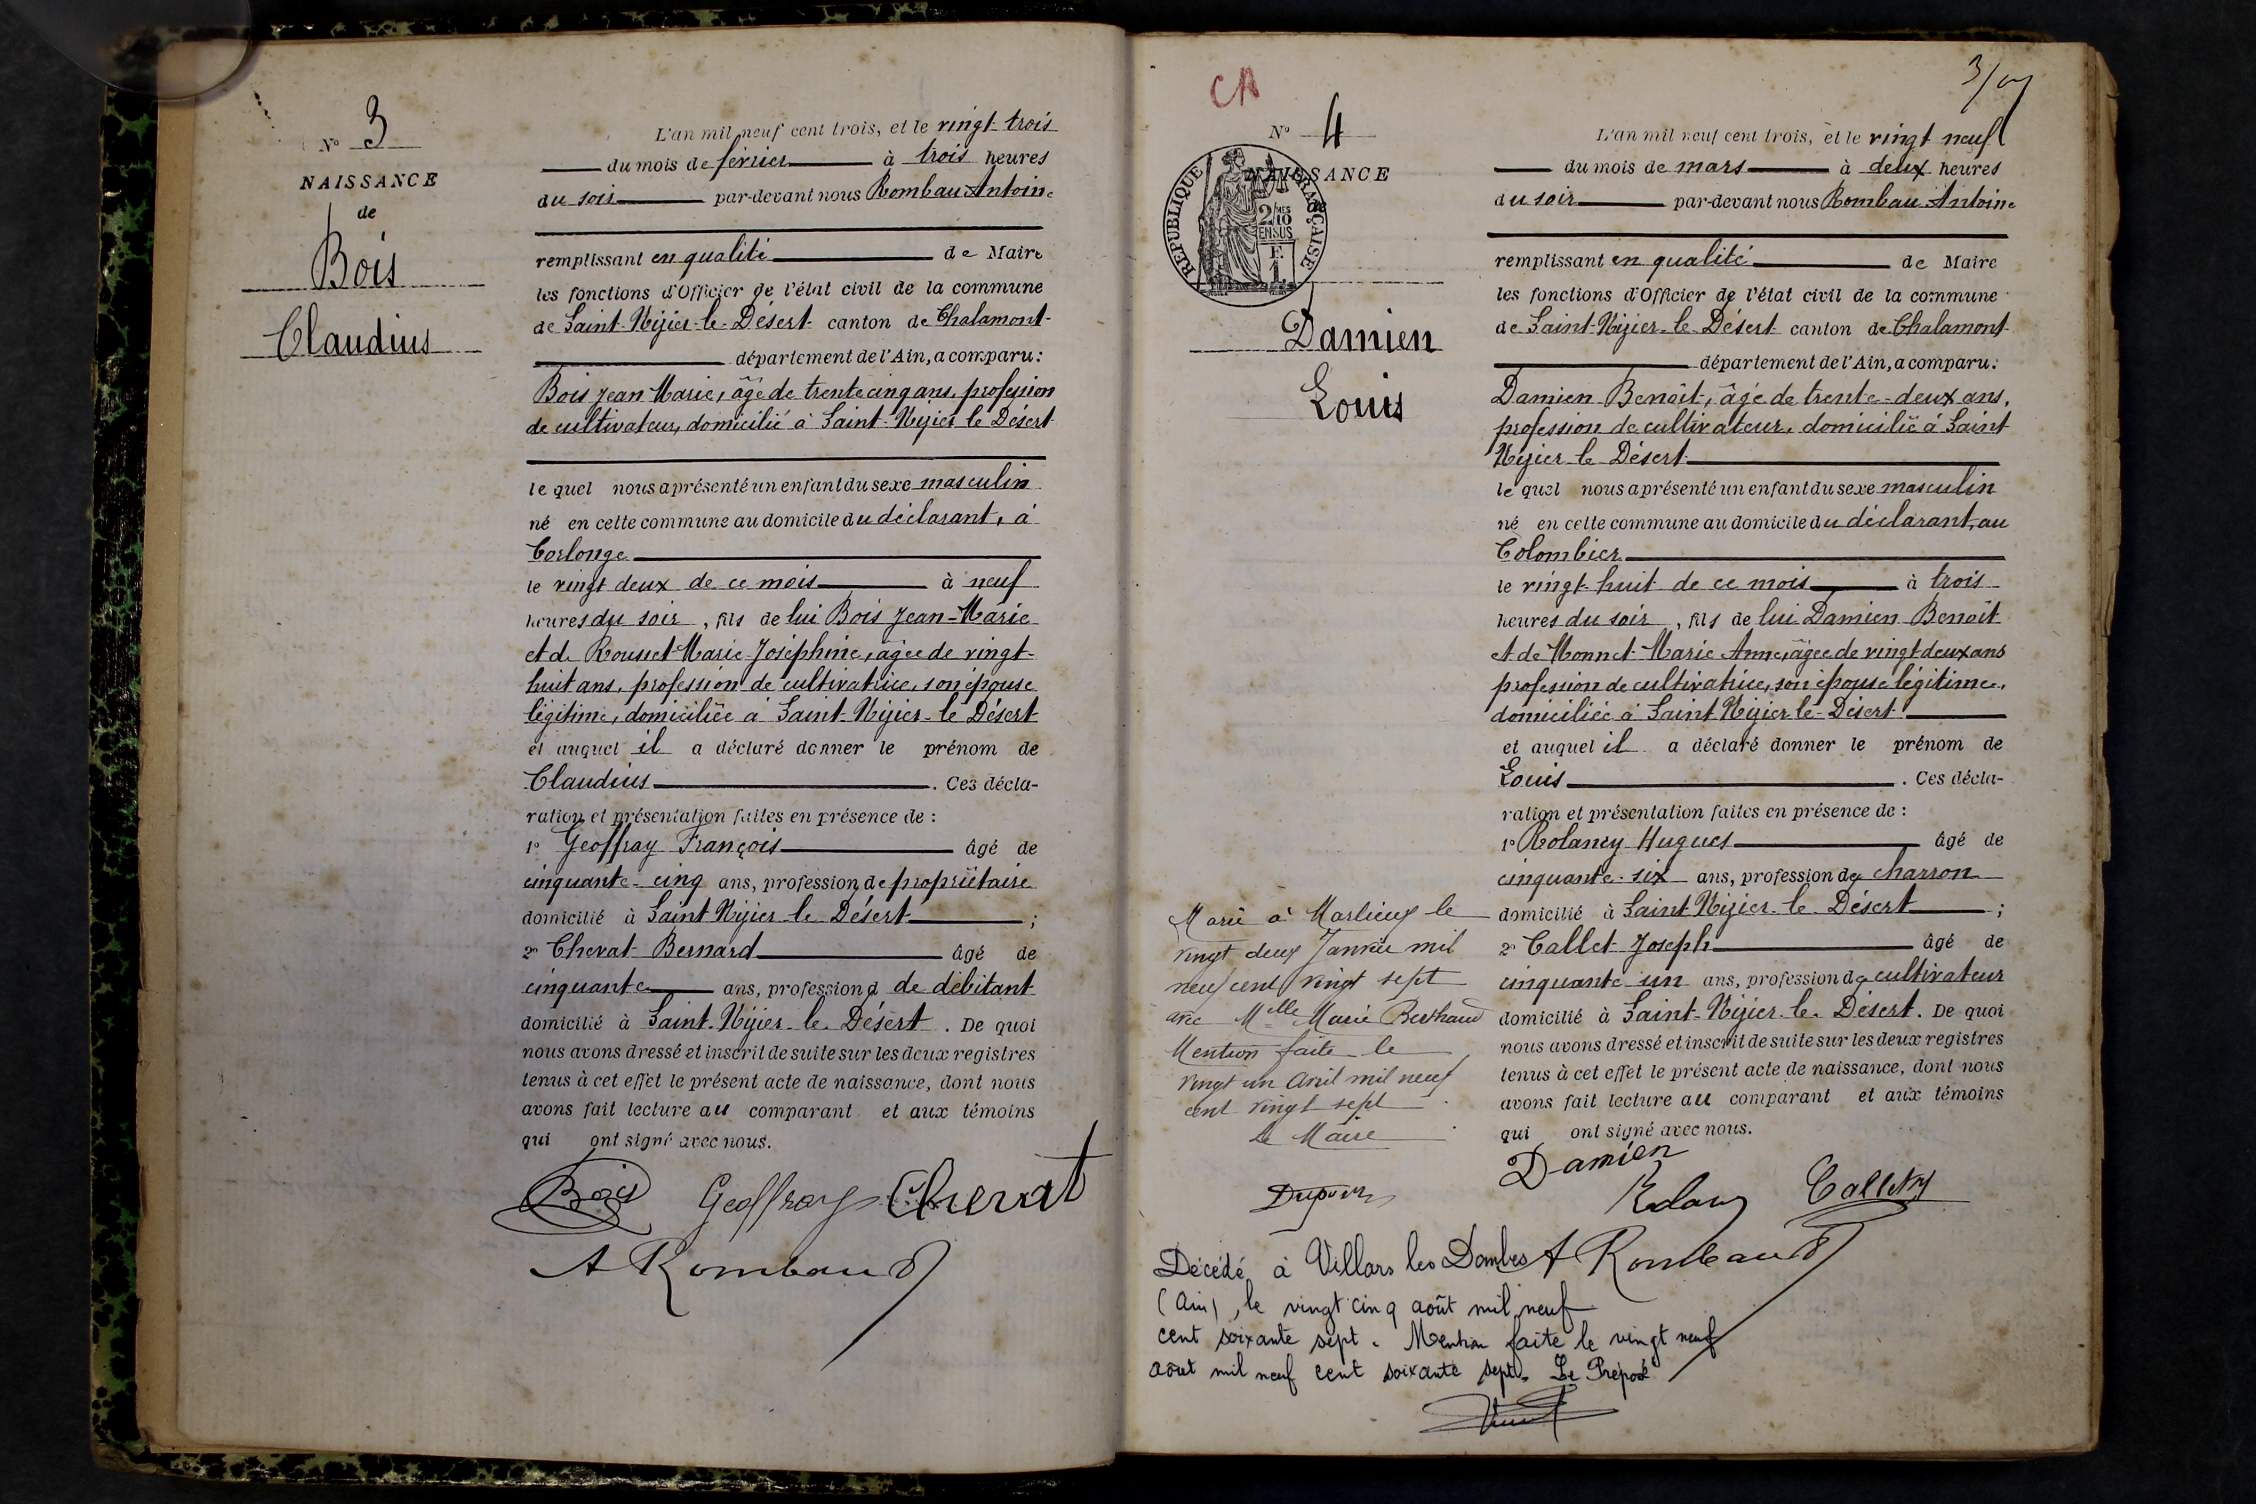 N° 3
NAISSANCE
de
Bois
Claudius
L'an mil neuf cent trois, et le vingt-trois
du mois de février à trois heures
du soir par-devant nous Rombau Antoine
remplissant en qualité de Maire
les fonctions d'Officier de l'état civil de la commune
de Saint-Nizier-le-Désert canton de Chalamont
département de l'Ain, a comparu :
Bois Jean Marie, âgé de trente cinq ans, profession
de cultivateur, domicilié à Saint-Nizier le Désert
le quel nous a présenté un enfant du sexe masculin
né en cette commune au domicile du déclarant, à
Corlonge
le vingt deux de ce mois à neuf
heures du soir, fils de lui Bois Jean-Marie
et de Rousset Marie Joséphine, âgée de vingt-
huit ans, profession de cultivatrice, son épouse
légitime, domiciliée à Saint-Nizier-le Désert
et auquel il a déclaré donner le prénom de
Claudius. Ces décla-
ration et présentation faites en présence de :
1° Geoffray François âgé de
cinquante-cinq ans, profession de propriétaire
domicilié à Saint Nizier-le Désert ;
2° Chevat Bernard âgé de
cinquante ans, profession d de débitant
domicilié à Saint-Nizier-le-Désert. De quoi
nous avons dressé et inscrit de suite sur les deux registres
tenus à cet effet le présent acte de naissance, dont nous
avons fait lecture au comparant et aux témoins
qui ont signé avec nous.
Bois Geoffray Chevat
A Rombaud
CA
3/
N° 4
NAISSANCE
RÉPUBLIQUE FRANÇAISE
2/10
EN SUS
F.
1
Damien
Louis
L'an mil neuf cent trois, et le vingt neuf
du mois de mars à deux heures
du soir par-devant nous Rombau Antoine
remplissant en qualité de Maire
les fonctions d'Officier de l'état civil de la commune
de Saint-Nizier-le Désert canton de Chalamont
département de l'Ain, a comparu :
Damien Benoît, âgé de trente-deux ans,
profession de cultivateur, domicilié à Saint
Nizier-le Désert
le quel nous a présenté un enfant du sexe masculin
né en cette commune au domicile du déclarant, au
Colombier
le vingt huit de ce mois à trois
heures du soir, fils de lui Damien Benoît
et de Monnet Marie Anne, âgée de vingt deux ans
profession de cultivatrice, son épouse légitime,
domiciliée à Saint Nizier-le-Désert
et auquel il a déclaré donner le prénom de
Louis. Ces décla-
ration et présentation faites en présence de :
1° Rolancy Hugues âgé de
cinquante-six ans, profession de charron
domicilié à Saint Nizier-le-Désert ;
2° Callet Joseph âgé de
cinquante un ans, profession de cultivateur
domicilié à Saint-Nizier-le-Désert. De quoi
nous avons dressé et inscrit de suite sur les deux registres
tenus à cet effet le présent acte de naissance, dont nous
avons fait lecture au comparant et aux témoins
qui ont signé avec nous.
Damien
Callet
A Rombaud
Marié à Marlieux le
vingt deux Janvier mil
neuf cent vingt sept
avec Mlle Marie Berthaud
Mention faite le
vingt un avril mil neuf
cent vingt sept
Le Maire
Décédé à Villars les Dombes
(Ain), le vingt cinq août mil neuf
cent soixante sept. Mention faite le vingt neuf
août mil neuf cent soixante sept. Le Préposé